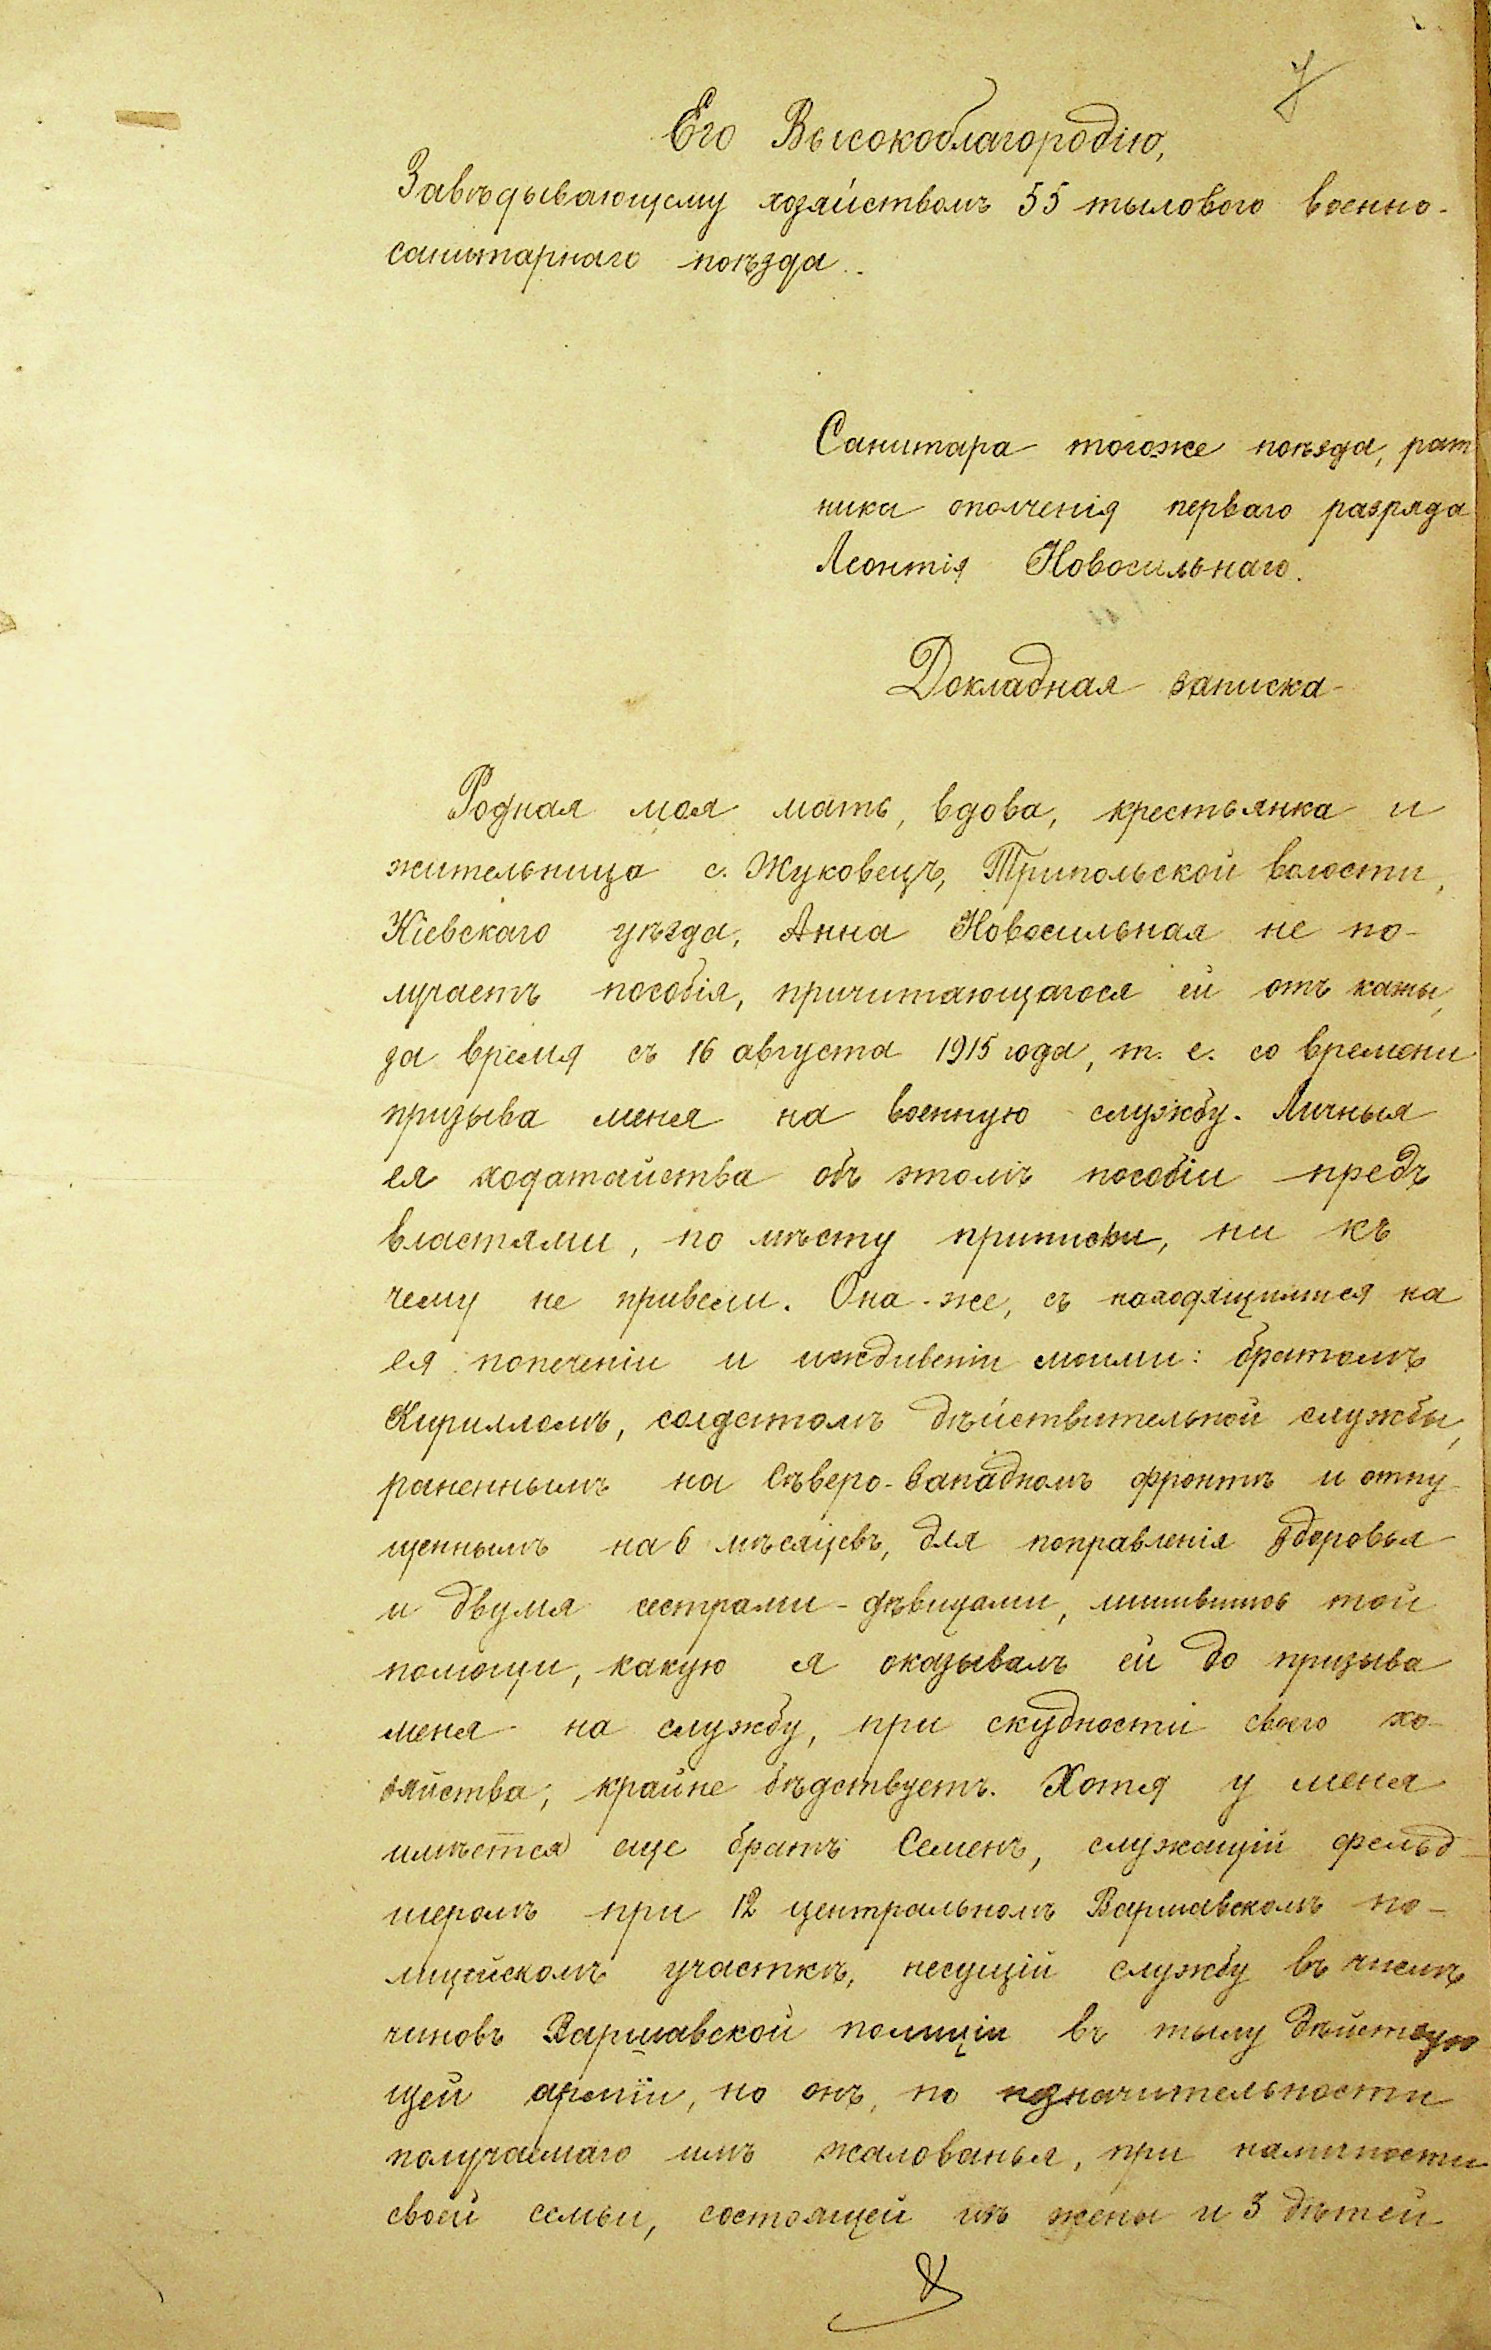 Его Высокоблагородію,
Завѣдывающему хозяйствомъ 55 тылового военно-
санитарнаго поѣзда.
Санитара тогоже поѣзда, рат
ника ополченія перваго разряда
Леонтія Новосильнаго.
Докладная записка
Родная моя мать, вдова, крестьянка и
жительница с. Жуковецъ, Трипольской волости,
Кіевскаго уѣзда, Анна Новосильная не по-
лучаетъ пособія, причитающагося ей отъ казны,
за время съ 16 августа 1915 года, т. е. со времени
призыва меня на военную службу. Личныя
ея ходатайства объ этомъ пособіи предъ
властями, по мѣсту приписки, ни къ
чему не привели. Она-же, съ находящимися на
ея попеченіи и иждивеніи моими: братомъ
Кирилломъ, солдатомъ дѣйствительной службы,
раненнымъ на Сѣверо-западномъ фронтѣ и отпу
щеннымъ на 6 мѣсяцевъ, для поправленія здоровья
и двумя сестрами-дѣвицами, лишившись той
помощи, какую я оказывалъ ей до призыва
меня на службу, при скудности своего хо-
зяйства, крайне бѣдствуетъ. Хотя у меня
имѣется еще братъ Семенъ, служащій фельд-
шеромъ при 12 центральномъ Варшавскомъ по-
лицейскомъ участкѣ, несущій службу въ числѣ
чиновъ Варшавской полиціи въ тылу дѣйствую
щей арміи, но онъ, по незначительности
получаемаго имъ жалованья, при наличности
своей семьи, состоящей изъ жены и 3 дѣтей